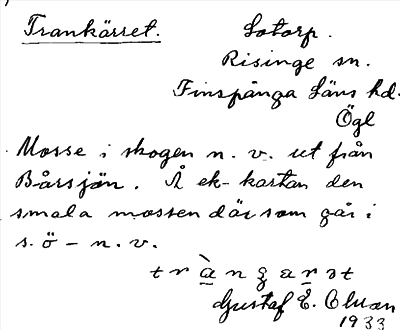 Trankärret.
Sotorp.
Risinge sn.
Finspånga Läns hd.
Ögl
Mosse i skogen n. v. ut från
Bårsjön. Å ek-kartan den
smala mossen där som går i
s.ö – n.v.
Gustaf E. Olman
1933